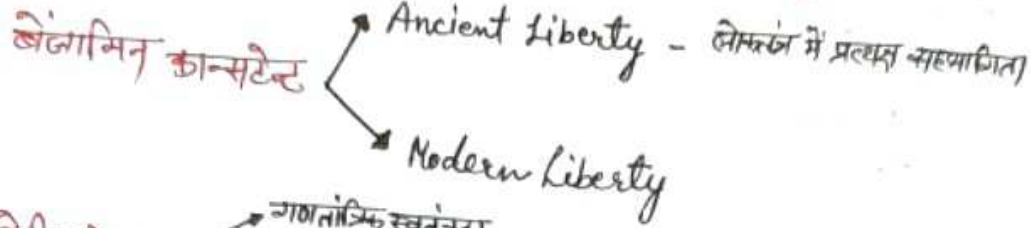 बेंजामिन कान्सटेन्ट
Ancient Liberty - लोकतंत्र में प्रत्यक्ष सहभागिता
Modern Liberty
गणतांत्रिक स्वतंत्रता